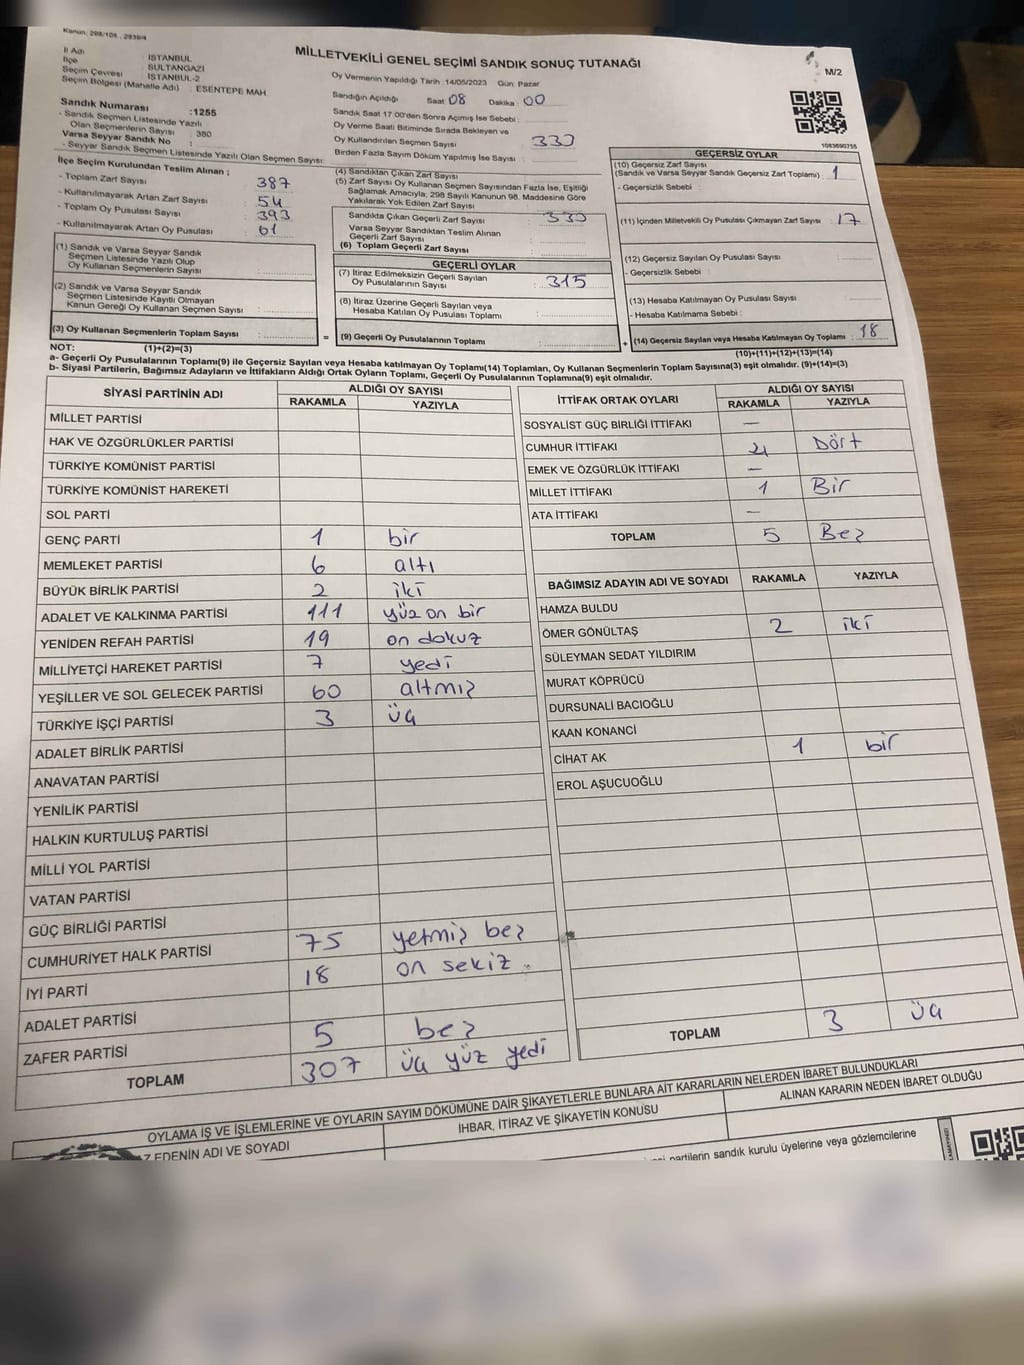 Kanun: 298/105 , 2839/4
MİLLETVEKİLİ GENEL SEÇİMİ SANDIK SONUÇ TUTANAĞI
M/2
İl Adı : İSTANBUL
İlçe : SULTANGAZİ
Seçim Çevresi : İSTANBUL-2
Seçim Bölgesi (Mahalle Adı) : ESENTEPE MAH.
Oy Vermenin Yapıldığı Tarih : 14/05/2023 Gün: Pazar
Sandığın Açıldığı Saat : 08 Dakika : 00
Sandık Saat 17.00'den Sonra Açılmış İse Sebebi :
Oy Verme Saati Bitiminde Sırada Bekleyen ve
Oy Kullandırılan Seçmen Sayısı : 330
Birden Fazla Sayım Döküm Yapılmış İse Sayısı :
Sandık Numarası : 1255
- Sandık Seçmen Listesinde Yazılı
Olan Seçmenlerin Sayısı : 380
Varsa Seyyar Sandık No :
- Seyyar Sandık Seçmen Listesinde Yazılı Olan Seçmen Sayısı:
İlçe Seçim Kurulundan Teslim Alınan ;
- Toplam Zarf Sayısı : 387
- Kullanılmayarak Artan Zarf Sayısı : 54
- Toplam Oy Pusulası Sayısı : 393
- Kullanılmayarak Artan Oy Pusulası : 61
(1) Sandık ve Varsa Seyyar Sandık
Seçmen Listesinde Yazılı Olup
Oy Kullanan Seçmenlerin Sayısı :
(2) Sandık ve Varsa Seyyar Sandık
Seçmen Listesinde Kayıtlı Olmayan
Kanun Gereği Oy Kullanan Seçmen Sayısı :
(3) Oy Kullanan Seçmenlerin Toplam Sayısı :
(4) Sandıktan Çıkan Zarf Sayısı
(5) Zarf Sayısı Oy Kullanan Seçmen Sayısından Fazla İse, Eşitliği
Sağlamak Amacıyla; 298 Sayılı Kanunun 98. Maddesine Göre
Yakılarak Yok Edilen Zarf Sayısı
Sandıkta Çıkan Geçerli Zarf Sayısı : 330
Varsa Seyyar Sandıktan Teslim Alınan
Geçerli Zarf Sayısı
(6) Toplam Geçerli Zarf Sayısı
GEÇERLİ OYLAR
(7) İtiraz Edilmeksizin Geçerli Sayılan
Oy Pusulalarının Sayısı : 315
(8) İtiraz Üzerine Geçerli Sayılan veya
Hesaba Katılan Oy Pusulası Toplamı :
= (9) Geçerli Oy Pusulalarının Toplamı :
1083690755
GEÇERSİZ OYLAR
(10) Geçersiz Zarf Sayısı
(Sandık ve Varsa Seyyar Sandık Geçersiz Zarf Toplamı) : 1
- Geçersizlik Sebebi :
(11) İçinden Milletvekili Oy Pusulası Çıkmayan Zarf Sayısı : 17
(12) Geçersiz Sayılan Oy Pusulası Sayısı :
- Geçersizlik Sebebi :
(13) Hesaba Katılmayan Oy Pusulası Sayısı :
- Hesaba Katılmama Sebebi :
+ (14) Geçersiz Sayılan veya Hesaba Katılmayan Oy Toplamı : 18
NOT: (1)+(2)=(3)
(10)+(11)+(12)+(13)=(14)
a- Geçerli Oy Pusulalarının Toplamı(9) ile Geçersiz Sayılan veya Hesaba katılmayan Oy Toplamı(14) Toplamları, Oy Kullanan Seçmenlerin Toplam Sayısına(3) eşit olmalıdır. (9)+(14)=(3)
b- Siyasi Partilerin, Bağımsız Adayların ve İttifakların Aldığı Ortak Oyların Toplamı, Geçerli Oy Pusulalarının Toplamına(9) eşit olmalıdır.
SİYASİ PARTİNİN ADI ALDIĞI OY SAYISI
RAKAMLA YAZIYLA
MİLLET PARTİSİ
HAK VE ÖZGÜRLÜKLER PARTİSİ
TÜRKİYE KOMÜNİST PARTİSİ
TÜRKİYE KOMÜNİST HAREKETİ
SOL PARTİ
GENÇ PARTİ 1 bir
MEMLEKET PARTİSİ 6 altı
BÜYÜK BİRLİK PARTİSİ 2 iki
ADALET VE KALKINMA PARTİSİ 111 yüz on bir
YENİDEN REFAH PARTİSİ 19 on dokuz
MİLLİYETÇİ HAREKET PARTİSİ 7 yedi
YEŞİLLER VE SOL GELECEK PARTİSİ 60 altmış
TÜRKİYE İŞÇİ PARTİSİ 3 üç
ADALET BİRLİK PARTİSİ
ANAVATAN PARTİSİ
YENİLİK PARTİSİ
HALKIN KURTULUŞ PARTİSİ
MİLLİ YOL PARTİSİ
VATAN PARTİSİ
GÜÇ BİRLİĞİ PARTİSİ
CUMHURİYET HALK PARTİSİ 75 yetmiş beş
İYİ PARTİ 18 on sekiz
ADALET PARTİSİ
ZAFER PARTİSİ 5 beş
TOPLAM 307 üç yüz yedi
İTTİFAK ORTAK OYLARI ALDIĞI OY SAYISI
RAKAMLA YAZIYLA
SOSYALİST GÜÇ BİRLİĞİ İTTİFAKI —
CUMHUR İTTİFAKI 4 Dört
EMEK VE ÖZGÜRLÜK İTTİFAKI —
MİLLET İTTİFAKI 1 Bir
ATA İTTİFAKI —
TOPLAM 5 Beş
BAĞIMSIZ ADAYIN ADI VE SOYADI RAKAMLA YAZIYLA
HAMZA BULDU
ÖMER GÖNÜLTAŞ 2 iki
SÜLEYMAN SEDAT YILDIRIM
MURAT KÖPRÜCÜ
DURSUNALİ BACIOĞLU
KAAN KONANCİ
CİHAT AK 1 bir
EROL AŞUCUOĞLU
TOPLAM 3 üç
OYLAMA İŞ VE İŞLEMLERİNE VE OYLARIN SAYIM DÖKÜMÜNE DAİR ŞİKAYETLERLE BUNLARA AİT KARARLARIN NELERDEN İBARET BULUNDUKLARI
Z EDENİN ADI VE SOYADI
İHBAR, İTİRAZ VE ŞİKAYETİN KONUSU
ALINAN KARARIN NEDEN İBARET OLDUĞU
partilerin sandık kurulu üyelerine veya gözlemcilerine